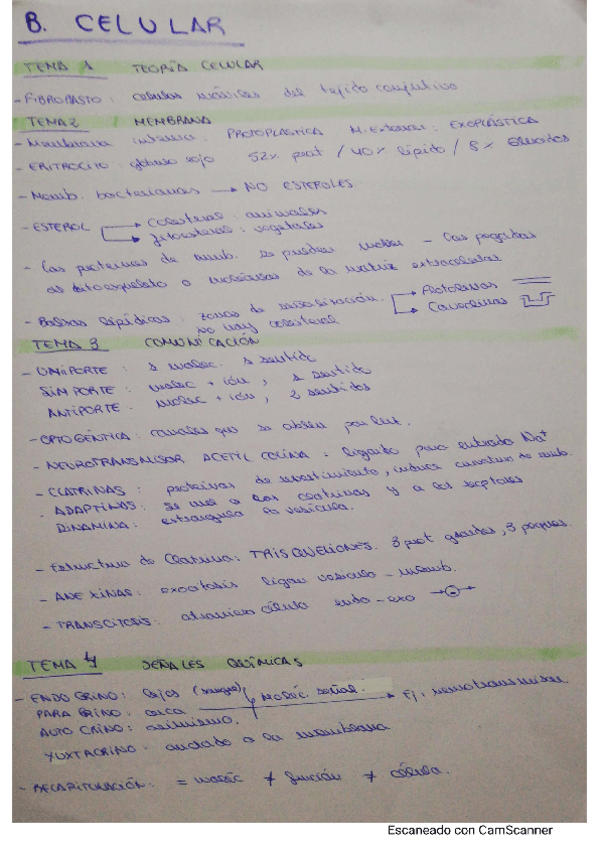 B. CELULAR
TEMA 1 TEORÍA CELULAR
- FIBROBASTO: células móviles del tejido conjuntivo
TEMA 2 MEMBRANA
- Membrana interna: PROTOPLASTICA M. Externa: EXOPLÁSTICA
- ERITROCITO: globulo rojo 52% prot / 40% lípido / 8%
- Memb. bacterianas → NO ESTEROLES
- ESTEROL → Colesterol: animales
→ fitoesterol: vegetales
- Las proteinas de memb. se pueden mover - las pegadas
al citoesqueleto o moléculas de la matriz extracelular
- Balsas lipídicas: zonas de señalización. → Plotolinas
no hay colesterol → Caveolinas
TEMA 3 COMUNICACIÓN
- UNIPORTE: 1 molec. 1 sentido
SIMPORTE: molec + ión, 1 sentido
ANTIPORTE: molec + ión, 2 sentidos
- OPTOGÉNTICA: canales que se abren por luz.
- NEUROTRANSMISOR ACETIL COLINA: ligando para entrada Na+
- CLATRINAS: proteinas de revestimiento, induce curvatura de memb.
- ADAPTINAS: se une a las clatrinas y a los receptores
DINAMINA: estrangula la vesícula.
- Estructura de Clatrina: TRISQUELIONES. 3 prot grandes, 3 peques.
- ANEXINAS: exocitosis ligan vesícula - memb.
- TRANSCITOSIS: atraviesa célula endo - exo
TEMA 4 SEÑALES QUÍMICAS
- ENDOCRINO: lejos (sangre) Molec señal.
PARACRINO: cerca → Ej: neurotransmisor
AUTOCRINO: asimismo.
YUXTACRINO: anclado a la membrana
- RECAPITULACIÓN: = molec ≠ función ≠ célula.
Escaneado con CamScanner